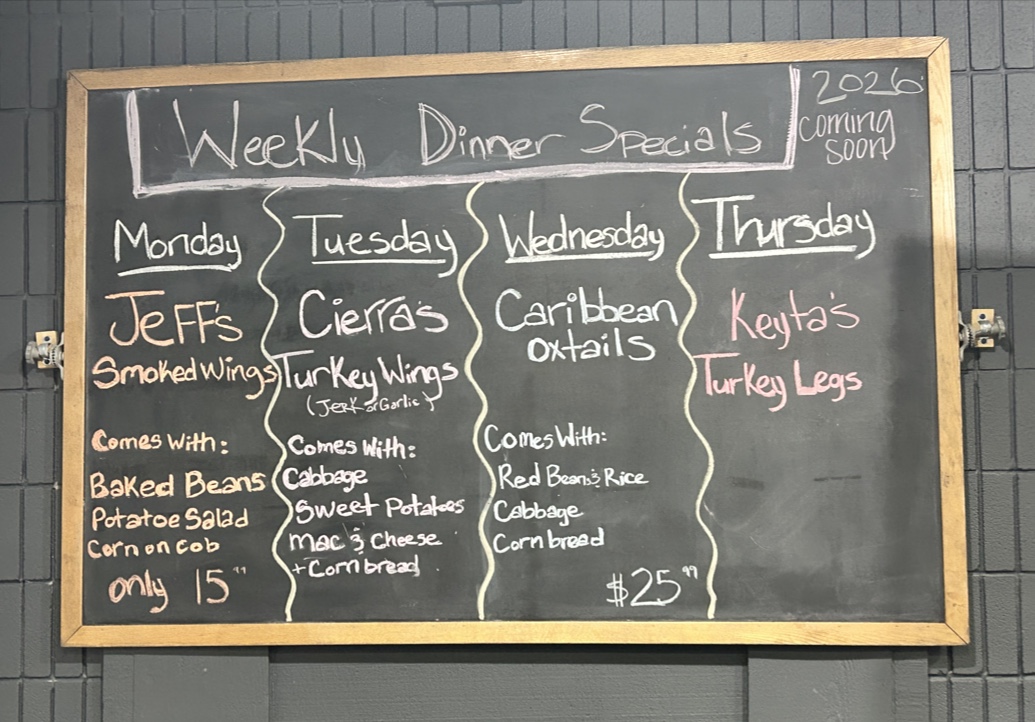 Weekly Dinner Specials
2026
coming
soon
Monday
Jeff's
Smoked Wings
Comes With:
Baked Beans
Potatoe Salad
Corn on cob
only 15 99
Tuesday
Cierra's
Turkey Wings
(Jerk or Garlic)
Comes With:
Cabbage
Sweet Potatoes
Mac & Cheese
+ Corn bread
Wednesday
Caribbean
oxtails
Comes With:
Red Beans & Rice
Cabbage
Corn bread
$25 99
Thursday
Keyta's
Turkey Legs